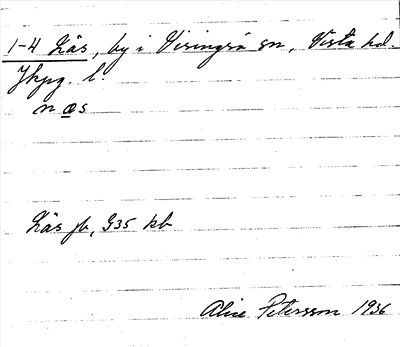 1-4 Näs, by i Visingsö sn, Vista hd.
Jkpg. l.
næs
Näs jb, G35 kb
Alice Petersson 1936